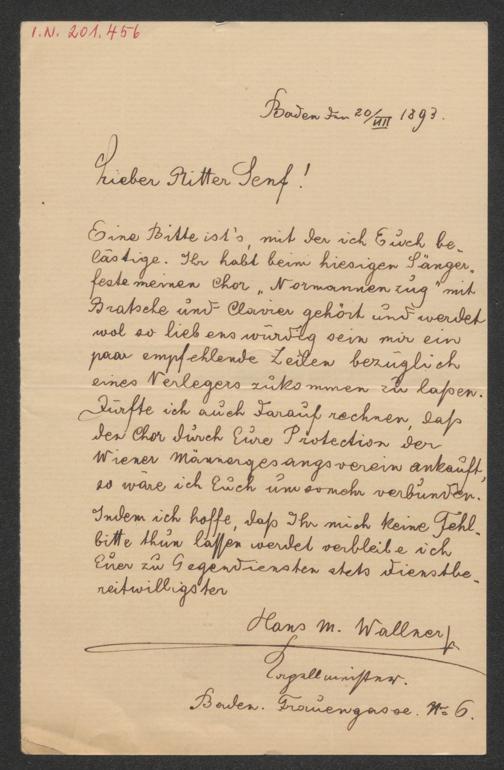 I.N. 201.456
Baden den 20/VII 1893.
Lieber Ritter Senf!
Eine Bitte ist's, mit der ich Euch be-
lästige. Ihr habt beim hiesigen Sänger-
feste meinen Chor „Normannenzug" mit
Bratsche und Clavier gehört und werdet
wol so liebenswürdig sein mir ein
paar empfehlende Zeilen bezüglich
eines Verlegers zukommen zu laßen.
Dürfte ich auch darauf rechnen, daß
den Chor durch Eure Protection der
Wiener Männergesangsverein ankauft,
so wäre ich Euch umsomehr verbunden.
Indem ich hoffe, daß Ihr mich keine Fehl-
bitte thun lassen werdet verbleibe ich
Eurer zu Gegendiensten stets dienstbe-
reitwilligster
Hans M. Wallner
Capellmeister.
Baden. Frauengasse. No 6.